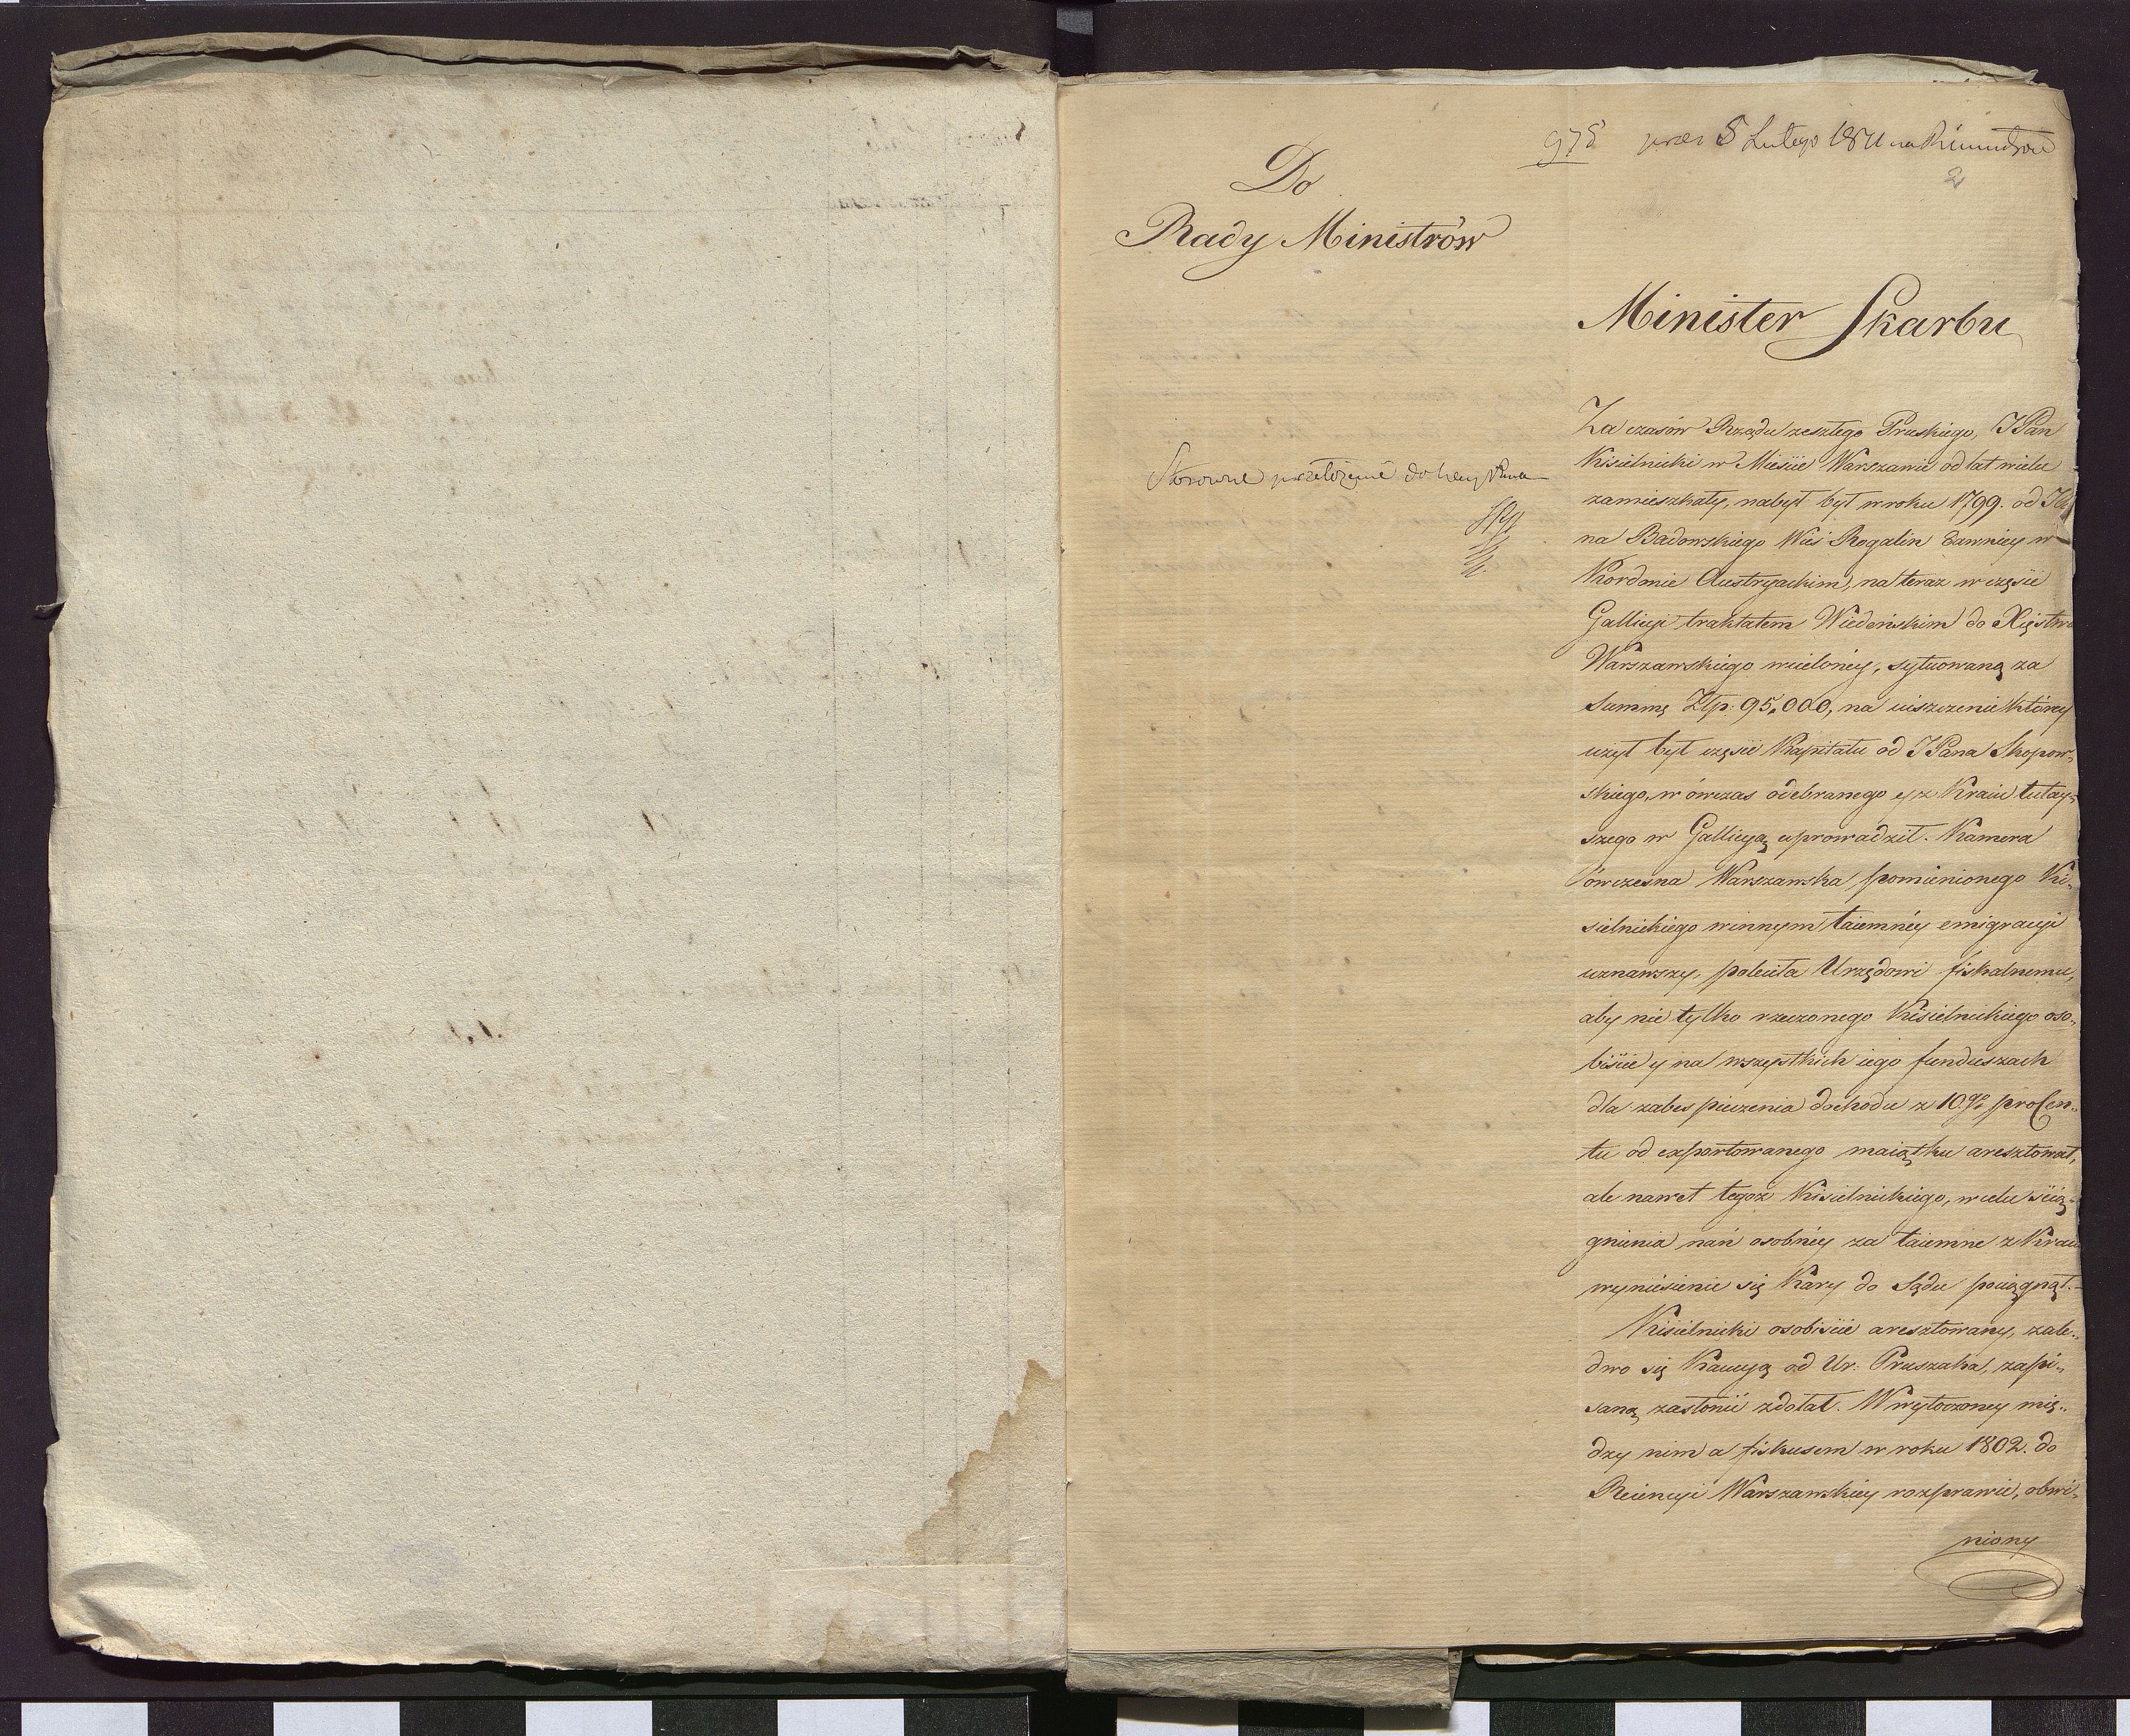 975 5 Lutego 1811 na
2
Do
Rady Ministrów
Minister Skarbu
Stosowne przełożenie do
Za czasów Rządu zeszłego Pruskiego, JPan
Kisielnicki w Mieście Warszawie od lat wielu
zamieszkały, nabył był w roku 1799. od JPa
na Badowskiego Wieś Rogalin dawniey w
Kordonie Austryackim, na teraz w części
Gallicyi traktatem Wiedeńskim do Xięstwa
Warszawskiego wcieloney, sytuowaną za
Summę Złp. 95,000, na uiszczenie którey
użył był części Kapitału od JPana Skopow-
skiego, w ówczas odebranego y z Kraiu tutey-
szego w Gallicyą uprowadził. Kamera
ówczesna Warszawska pomienionego Ki-
sielnickiego winnym taiemnéy emigracyi
uznawszy, poleciła Urzędowi fiskalnemu,
aby nie tylko rzeczonego Kisielnickiego oso-
biście y na wszystkich iego funduszach
dla zabespieczenia dochodu z 10.% proCen-
tu od exportowanego maiątku aresztował,
ale nawet tegoż Kisielnickiego, w celu ścią-
gnienia nań osobnéy za taiemne z Kraiu
wyniesienie się Kary do Sądu pociągnął.-
Kisielnicki osobiście aresztowany, zale-
dwo się Kaucyą od Ur: Pruszaka, zapi-
saną zasłonić zdołał. W wytoczoney mię-
dzy nim a fiskusem w roku 1802. do
Reiencyi Warszawskiey rozprawie, obwi-
niony